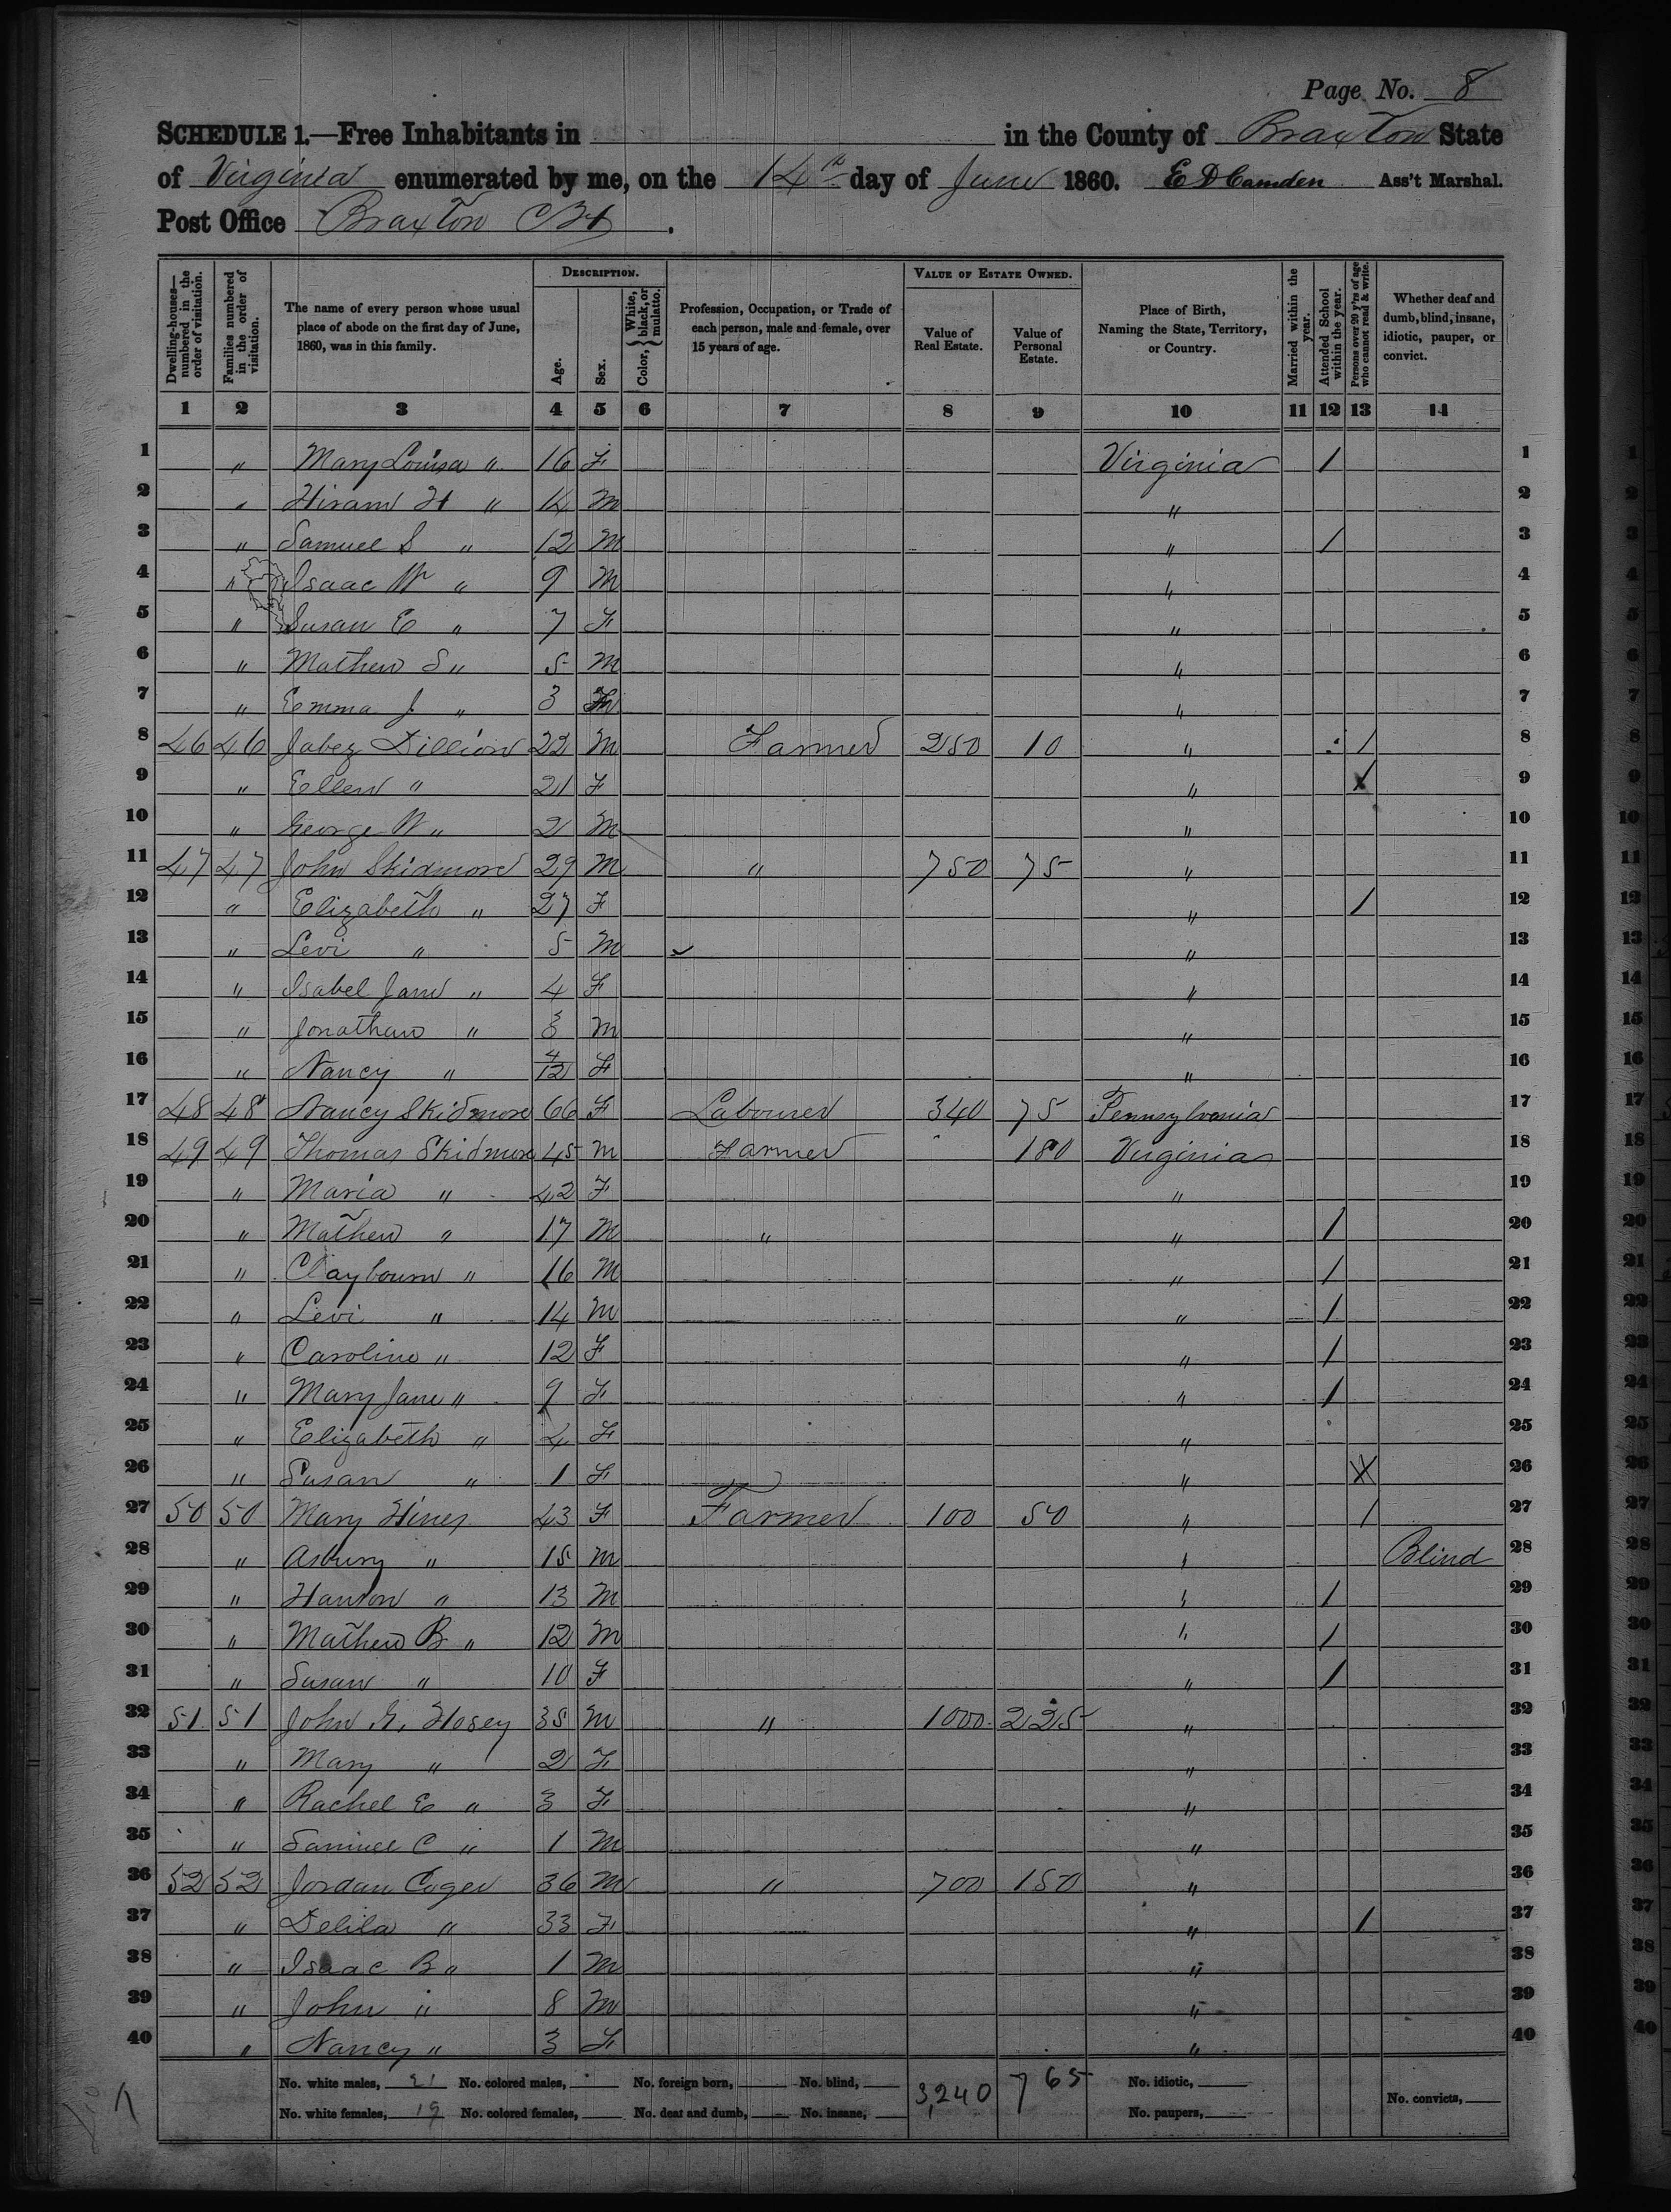 Page No. 8
SCHEDULE 1.—Free Inhabitants in in the County of Braxton State
of Virginia enumerated by me, on the 14th day of June 1860. E D Camden Ass't Marshal.
Post Office Braxton CH.
Dwelling-houses—numbered in the order of visitation. Families numbered in the order of visitation. The name of every person whose usual place of abode on the first day of June, 1860, was in this family. DESCRIPTION. Age. Sex. Color, { White, black, or mulatto. Profession, Occupation, or Trade of each person, male and female, over 15 years of age. VALUE OF ESTATE OWNED. Value of Real Estate. Value of Personal Estate. Place of Birth, Naming the State, Territory, or Country. Married within the year. Attended School within the year. Persons over 20 y'rs of age who cannot read & write. Whether deaf and dumb, blind, insane, idiotic, pauper, or convict.
1 2 3 4 5 6 7 8 9 10 11 12 13 14
1 " Mary Louisa " 16 F Virginia / 1
2 " Hiram H " 14 M " 2
3 " Samuel S " 12 M " / 3
4 " Isaac W " 9 M " 4
5 " Susan E " 7 F " 5
6 " Mathew S " 5 M " 6
7 " Emma J " 3 F " 7
8 46 46 Jabez Dillion 22 M Farmer 250 10 " / 8
9 " Ellen " 21 F " X 9
10 " George W " 2 M " 10
11 47 47 John Skidmore 29 M " 750 75 " 11
12 " Elizabeth " 27 F " / 12
13 " Levi " 5 M " 13
14 " Isabel Jane " 4 F " 14
15 " Jonathan " 3 M " 15
16 " Nancy " 4/12 F " 16
17 48 48 Nancy Skidmore 66 F Labourer 340 75 Pennsylvania 17
18 49 49 Thomas Skidmore 45 M Farmer 180 Virginia 18
19 " Maria " 42 F " 19
20 " Mathew " 17 M " " / 20
21 " Claybourn " 16 M " / 21
22 " Levi " 14 M " / 22
23 " Caroline " 12 F " / 23
24 " Mary Jane " 9 F " / 24
25 " Elizabeth " 4 F " 25
26 " Susan " 1 F " X 26
27 50 50 Mary Hines 43 F Farmer 100 50 " / 27
28 " Asbury " 15 M " Blind 28
29 " " 13 M " / 29
30 " Mathew B " 12 M " / 30
31 " Susan " 10 F " / 31
32 51 51 John G. Hosey 35 M " 1000 225 " 32
33 " Mary " 2 F " 33
34 " Rachel E " 3 F " 34
35 " Samuel C " 1 M " 35
36 52 52 Jordan Cogar 36 M " 700 150 " 36
37 " Delila " 33 F " / 37
38 " Isaac B " 1 M " 38
39 " John " 8 M " 39
40 " Nancy " 3 F " 40
No. white males, 21 No. colored males, No. foreign born, No. blind, 3,240 765 No. idiotic,
No. white females, 19 No. colored females, No. deaf and dumb, No. insane, No. paupers, No. convicts,